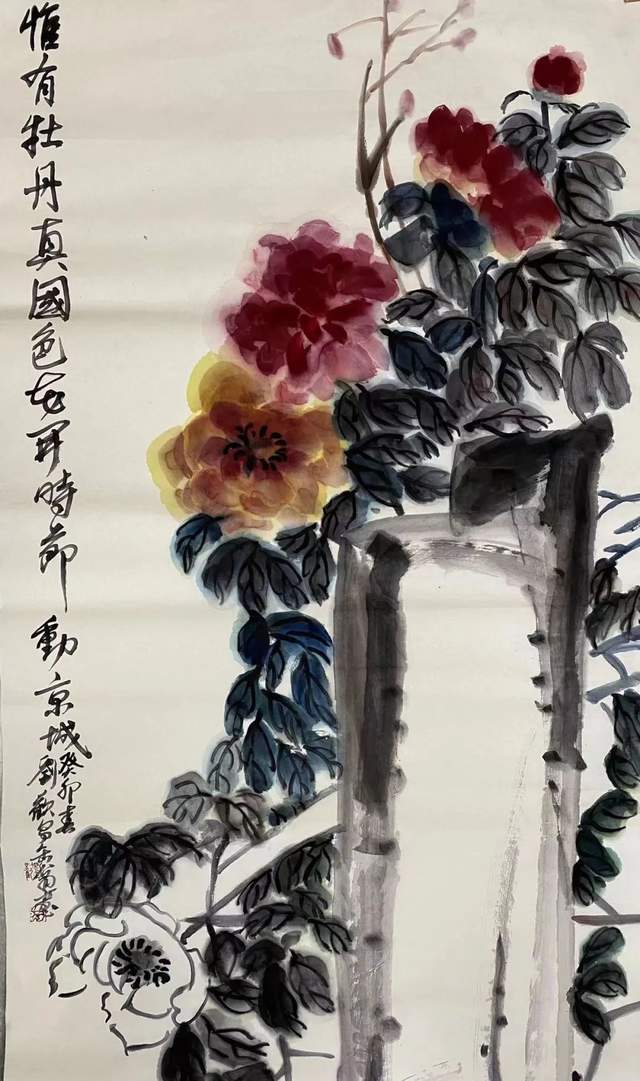 惟有牡丹真國色花開時節動京城
癸卯春
劉